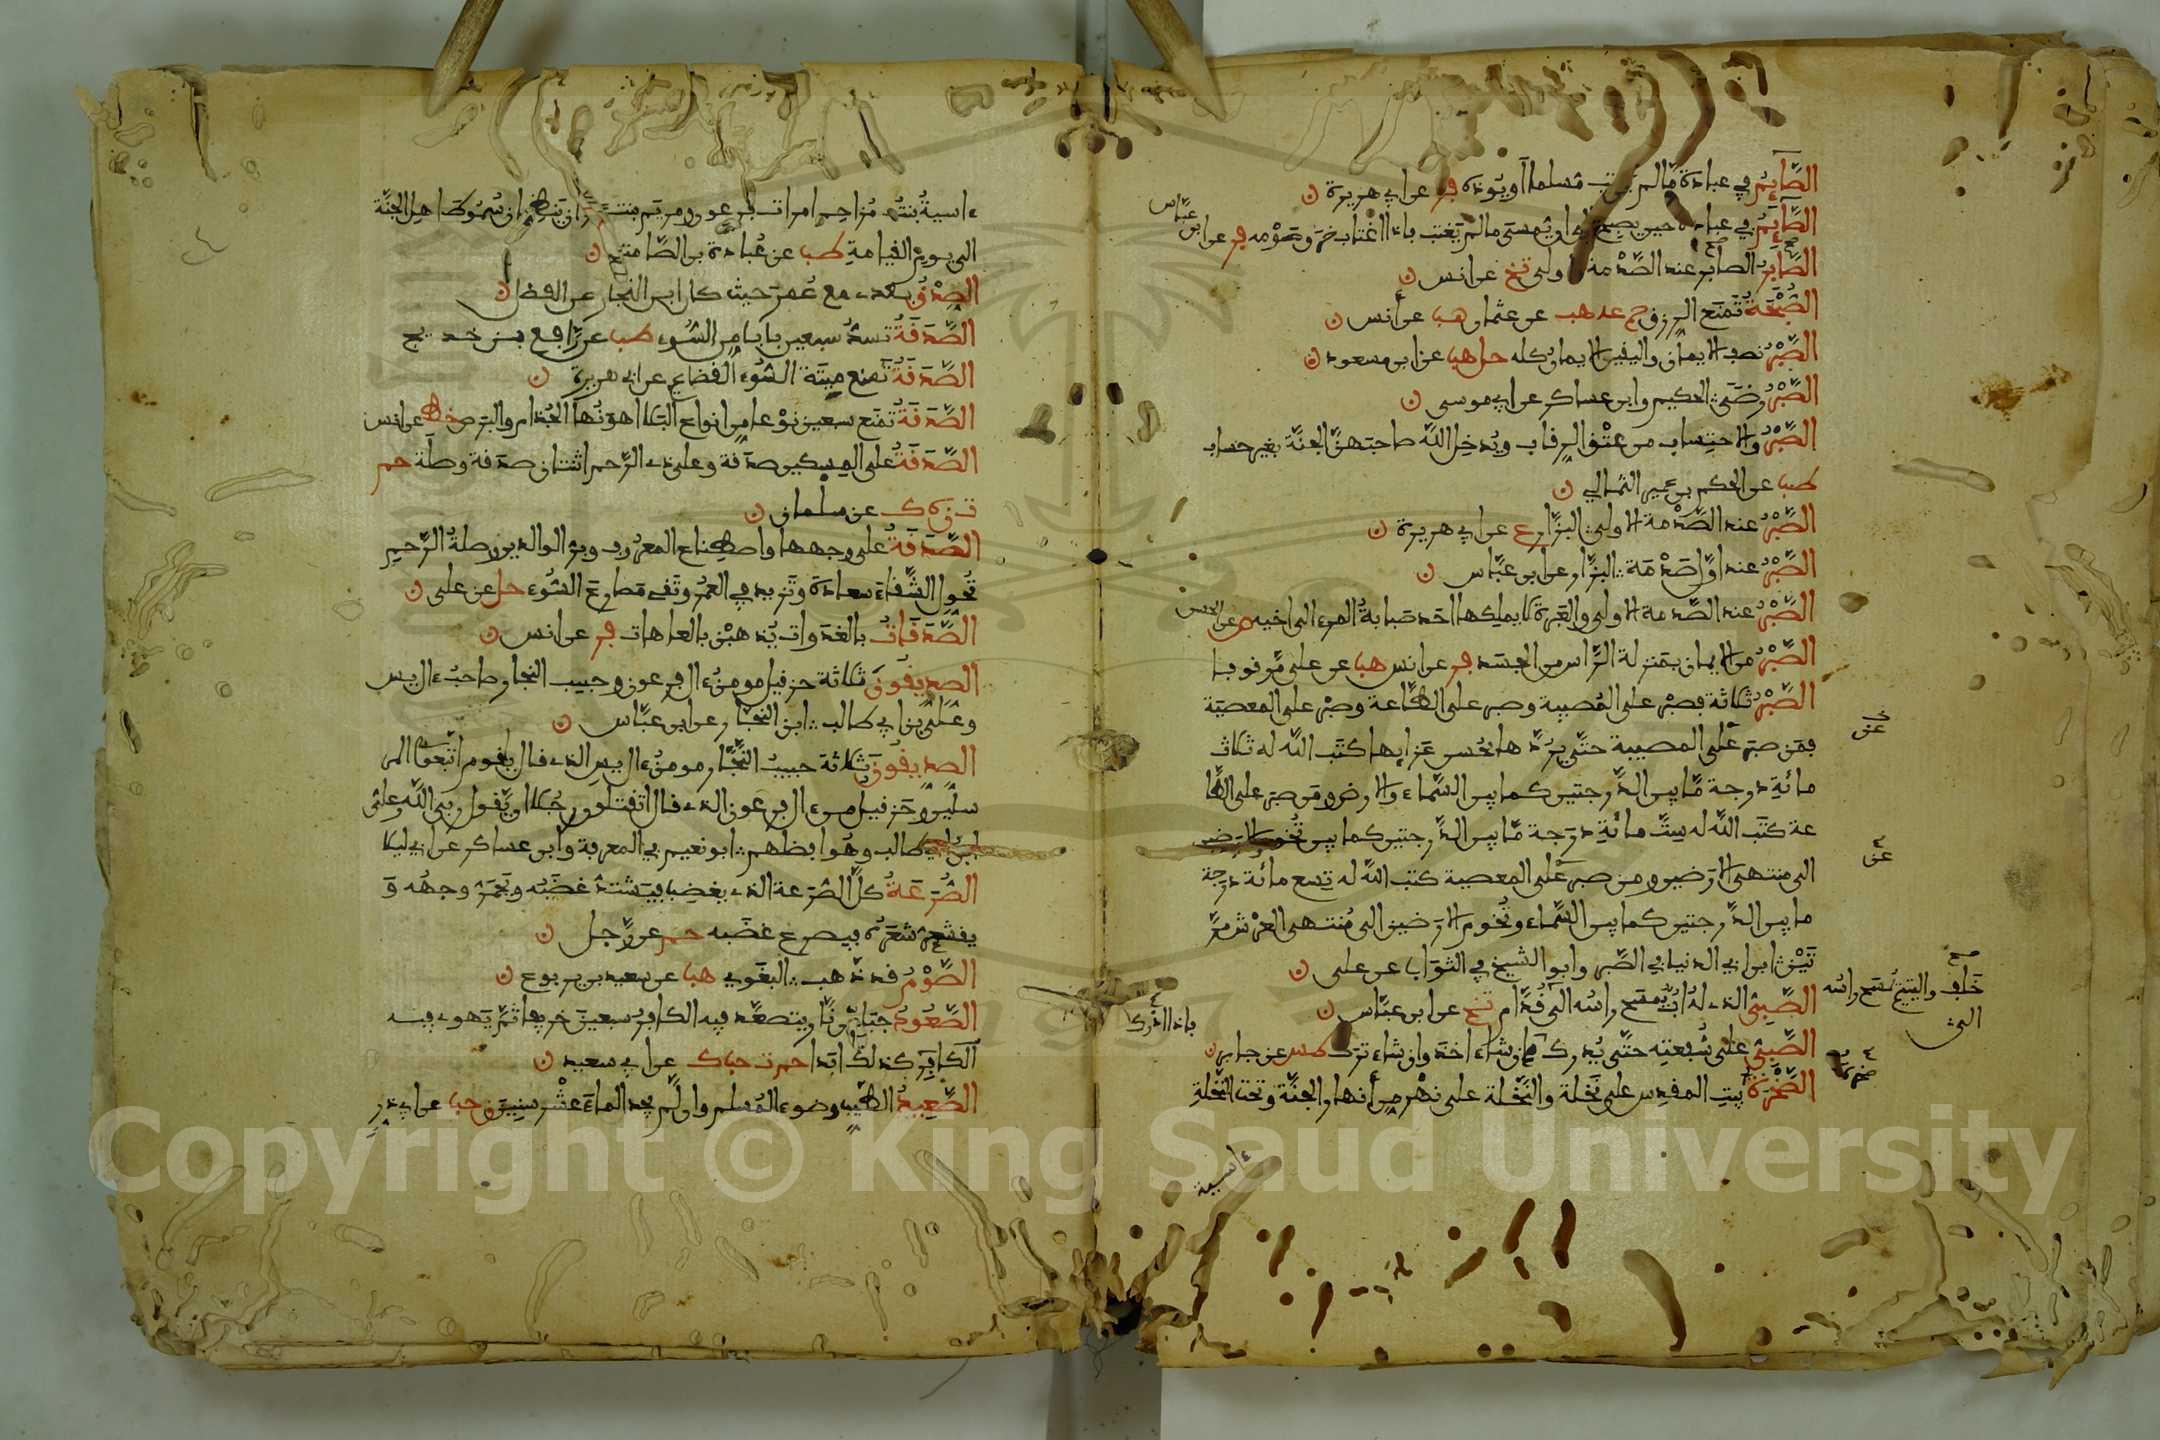 الصَّآيِمُ في عبادة مّا لم يغتب مُسلما أو يوذه فر عن ابي هريرة ن
الصَّآيِمُ في عبادة حين يصبح الى ان يُمسى ما لم يَغتب فإذا اغتاب خرق صَوْمه فر عن ابن عبّاس
الصَّابِرُ الصابر عند الصَّدْمة الاولى تخ عن انس ن
الصُّبْحَةُ تَمنَع الرزق حم عد هب عن عثمان هب عن أنس ن
الصَّبْرُ نصف الايمان واليقين الايمان كله حل هب عن ابن مسعود ن
الصَّبْرُ رِضَى الحكيم وابن عساكر عن ابي موسى ن
الصَّبْرُ والاحتِساب من عِتْق الرقاب ويُدخِل اللّٰه صاحبَهنّ الجنّة بغير حساب
طب عن الحكم بن عمير الثمالي ن
الصَّبْرُ عند الصَّدْمة الاولى البزّار ع عن ابي هريرة ن
الصَّبْرُ عند اوّل صَدْمَة البزّار عن ابن عبّاس ن
الصَّبْرُ عند الصَّدمة الاولى والعَبرة لا يملكها احَد صَبابةُ المرء الى اخيه ص عن الحسن
الصَّبْرُ من الايمان بمَنزلة الرّاس من الجسَد فر عن انس هب عن على مّوقوفا
الصَّبْرُ ثلاثة فصَبْر على المُصيبة وصبر على الطّاعة وصبْر على المعصيَة
فمَن صبَر عَلى المصيبة حتّى يرُدّها بحُسن عَزايها كتَب اللّٰه له ثلاث
مائةِ درجة مّا بين الدّرجتين كما بين السّماء والارض ومَن صبَر على الطّا
عة كتَب اللّٰه له سِتّ مائةِ درَجة مّا بين الدّرجتين كما بين تُخوم الارَضين
الى منتهى الارَضين ومن صبر عَلى المعصية كتب اللّٰه له تسع مائة درجة
ما بين الدّرجتين كما بين السّماء وتُخوم الارَضين الى مُنتهى العرْش مرّ
تَيْن ابن ابي الدنيا في الصَّبر وابو الشيخ في الثوَاب عن على ن
الصَّبِىُّ الذى لهُ ابٌ يُمسَح راسُه الى قُدّام تخ عن ابن عبّاس ن
خَلف واليتيم يُمسَح راسُه الى
صح
الصَّبِىُّ على شُفعتِه حتّى يُدرك فإن شاء اخذ وان شاء ترَك طس عن جابر ن
فإذا ادرك
الصَّخْرَةُ بيتِ المقدِس على نَخلة والنّخلة على نهْر مّن أنهار الجنّة وتحت النّخلةِ
ءاسية
ءاسيةُ بنتُ مُزاحِم امرات فرعون ومريَم بنت عمران يَنظِمان سُموط اهل الجنّة
الى يوم القيامةِ طب عن عُبادة بن الصّامت ن
الصِّدْقُ بعدى مع عُمرَ حيث كان ابن النجار عن الفضل ن
الصَّدَقَةُ تسدُّ سبعين بابا من السُّوء طب عن رّافع بن خديج
الصَّدَقَةُ تمنع مِيتَة السُّوء القضاعي عن ابي هريرة ن
الصَّدَقَةُ تمنَع سبعين نوْعا من انواع البَلا اهوَنُها الجُذام والبرَص خط عن انس
الصَّدَقَةُ على المِسكين صدَقة وعلى ذى الرّحم اثنتان صدَقة وصِلَة حم
ت ن ه ك عن سلمان ن
الصَّدَقَةُ على وجهها واصطِناع المعرُوف وبرّ الوالدين وصلةُ الرَّحِم
تُحَوِل الشَّقاءَ سعادَة وتَزيد في العمُر وتَقى مَصارعَ السُّوء حل عن على ن
الصَّدَقَاتُ بالغدَوات يُذهبْن بالعاهات فر عن انس ن
الصِّدِيقُونَ ثلاثة حزقيل مومنُ ءال فرعون وحبيب النجار صاحبُ ءال يس
وعَلىُّ بن ابي طالب ابن النجّار عن ابن عبّاس ن
الصِّدِيقُونَ ثلاثة حبيبُ النّجّار مومنُ ءال يس الذى قال يقوم اتّبعوا المر
سلين وحَزقيل مومن ءال فرعون الذى قال اتقتلون رجُلا ان يّقول ربى اللّٰه وعلىّ
ابن ابي طالب وهُو افضلهم ابو نعيم في المعرفة وابن عساكر عن ابي ليلا
الصُّرَعَةُ كلّ الصُّرَعة الذى يغضِب فيَشتدّ غضَبُه ويَحمَرّ وجهُه وَ
يقشعِرّ شعَرُه فيصرع غضَبه حم عن رّجل ن
الصَّوْمُ قد ذّهب البغَوي هب عن سعيد بن يربوع ن
الصَّعُودُ جبَلٌ مّن نّار يتصعّد فيه الكافِرُ سبعين خريفا ثمّ يَهوى فيه
الكَافِر كذلك ابَدا حم ت حب ك عن ابي سعيد ن
الصَّعِيدُ الطّيّب وضوء المُسلم وان لّم يجد الماءَ عشْر سنينَ ن حب عن ابي ذرٍ
Copyright © King Saud University